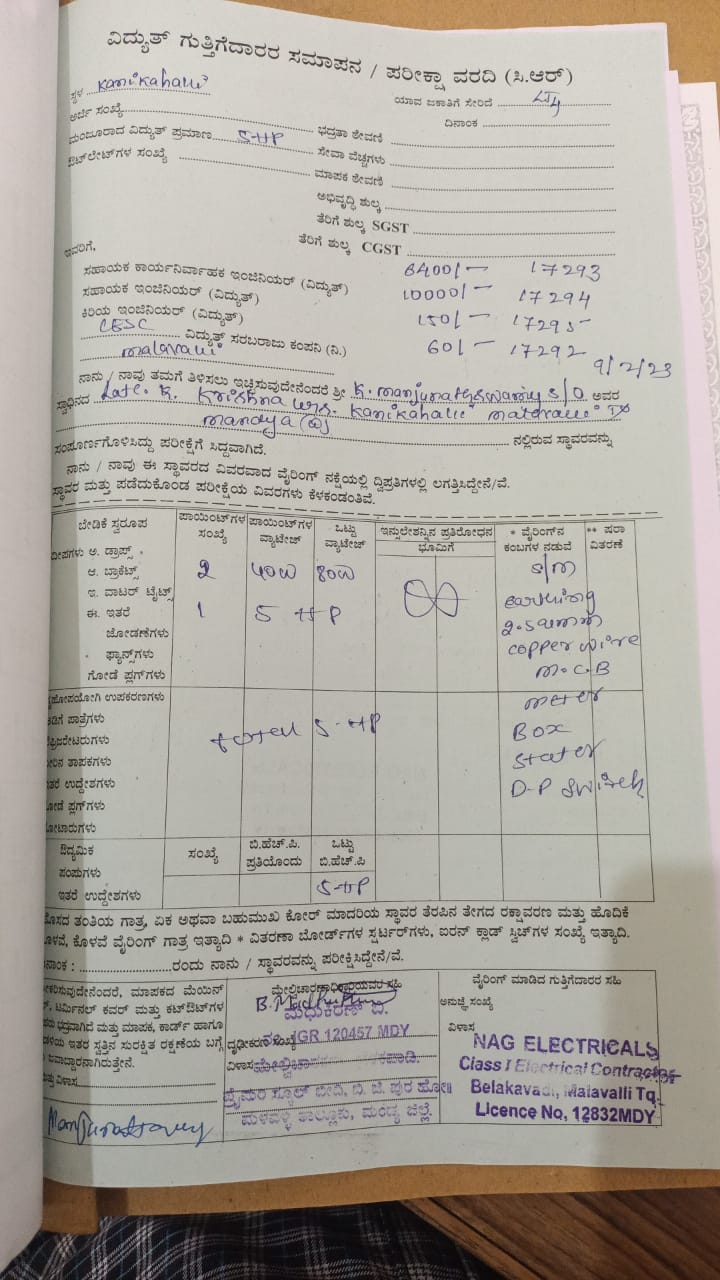 ವಿದ್ಯುತ್ ಗುತ್ತಿಗೆದಾರರ ಸಮಾಪನ / ಪರೀಕ್ಷಾ ವರದಿ (ಸಿ.ಆರ್)
ಸ್ಥಳ Kanikahalli ಯಾವ ಜಕಾತಿಗೆ ಸೇರಿದೆ LT4
ಅರ್ಜಿ ಸಂಖ್ಯೆ ದಿನಾಂಕ
ಮಂಜೂರಾದ ವಿದ್ಯುತ್ ಪ್ರಮಾಣ 5-HP ಭದ್ರತಾ ಠೇವಣಿ
ಔಟ್‌ಲೇಟ್‌ಗಳ ಸಂಖ್ಯೆ ಸೇವಾ ವೆಚ್ಚಗಳು
ಮಾಪಕ ಠೇವಣಿ
ಅಭಿವೃದ್ಧಿ ಶುಲ್ಕ
ತೆರಿಗೆ ಶುಲ್ಕ SGST
ತೆರಿಗೆ ಶುಲ್ಕ CGST
ಇವರಿಗೆ,
ಸಹಾಯಕ ಕಾರ್ಯನಿರ್ವಾಹಕ ಇಂಜಿನಿಯರ್ (ವಿದ್ಯುತ್) 6400/- 17293
ಸಹಾಯಕ ಇಂಜಿನಿಯರ್ (ವಿದ್ಯುತ್) 10000/- 17294
ಕಿರಿಯ ಇಂಜಿನಿಯರ್ (ವಿದ್ಯುತ್) 150/- 17295
CESC ವಿದ್ಯುತ್ ಸರಬರಾಜು ಕಂಪನಿ (ನಿ.) 60/- 17292
malavalli 9/2/23
ನಾನು / ನಾವು ತಮಗೆ ತಿಳಿಸಲು ಇಚ್ಚಿಸುವುದೇನೆಂದರೆ ಶ್ರೀ K. manjunathswamy s/o ಅವರ
ಸ್ವಾಧಿನದ Late. K. Krishna urs. Kanikahalli malavalli
mandya (D)
ಸಂಪೂರ್ಣಗೊಳಿಸಿದ್ದು ಪರೀಕ್ಷೆಗೆ ಸಿದ್ದವಾಗಿದೆ. ನಲ್ಲಿರುವ ಸ್ಥಾವರವನ್ನು
ನಾನು / ನಾವು ಈ ಸ್ಥಾವರದ ವಿವರವಾದ ವೈರಿಂಗ್ ನಕ್ಷೆಯಲ್ಲಿ ದ್ವಿಪ್ರತಿಗಳಲ್ಲಿ ಲಗತ್ತಿಸಿದ್ದೇನೆ/ವೆ.
ಸ್ಥಾವರ ಮತ್ತು ಪಡೆದುಕೊಂಡ ಪರೀಕ್ಷೆಯ ವಿವರಗಳು ಕೆಳಕಂಡಂತಿವೆ.
ಬೇಡಿಕೆ ಸ್ವರೂಪ ಪಾಯಿಂಟ್‌ಗಳ ಸಂಖ್ಯೆ ಪಾಯಿಂಟ್‌ಗಳ ವ್ಯಾಟೇಜ್ ಒಟ್ಟು ವ್ಯಾಟೇಜ್ ಇನ್ಸುಲೇಶನ್ನಿನ ಪ್ರತಿರೋಧನ ಭೂಮಿಗೆ * ವೈರಿಂಗ್‌ನ ಕಂಬಗಳ ನಡುವೆ ** ಷರಾ ವಿತರಣೆ
ದೀಪಗಳು ಅ. ಡ್ರಾಪ್ಸ್
ಆ. ಬ್ರಾಕೆಟ್ಸ್ 2 40W 80W S/M
ಇ. ವಾಟರ್ ಟೈಟ್ಸ್ earthing
ಈ. ಇತರೆ 1 5 HP 2.5
ಜೋಡಣೆಗಳು copper wire
ಫ್ಯಾನ್ಸ್‌ಗಳು M.C.B
ಗೋಡೆ ಪ್ಲಗ್‌ಗಳು
ಗೃಹೋಪಯೋಗಿ ಉಪಕರಣಗಳು meter
ಅಡಿಗೆ ಪಾತ್ರೆಗಳು BOX
total 5-HP
ನೀರಿನ ತಾಪಕಗಳು stater
ಇತರೆ ಉದ್ದೇಶಗಳು D-P switch
ಗೋಡೆ ಪ್ಲಗ್‌ಗಳು
ಮೋಟಾರುಗಳು
ಔದ್ಯಮಿಕ ಸಂಖ್ಯೆ ಬಿ.ಹೆಚ್.ಪಿ. ಪ್ರತಿಯೊಂದು ಒಟ್ಟು ಬಿ.ಹೆಚ್.ಪಿ
ಪಂಪುಗಳು
ಇತರೆ ಉದ್ದೇಶಗಳು 5-HP
ಹೊಸದ ತಂತಿಯ ಗಾತ್ರ, ಏಕ ಅಥವಾ ಬಹುಮುಖ ಕೋರ್ ಮಾದರಿಯ ಸ್ಥಾವರ ತೆರಪಿನ ತೇಗದ ರಕ್ಷಾವರಣ ಮತ್ತು ಹೊದಿಕೆ
ಕೊಳವೆ, ಕೊಳವೆ ವೈರಿಂಗ್ ಗಾತ್ರ ಇತ್ಯಾದಿ * ವಿತರಣಾ ಬೋರ್ಡ್‌ಗಳ ಸ್ಟರ್ಟರ್‌ಗಳು, ಐರನ್ ಕ್ಲಾಡ್ ಸ್ವಿಚ್‌ಗಳ ಸಂಖ್ಯೆ ಇತ್ಯಾದಿ.
ದಿನಾಂಕ : ರಂದು ನಾನು / ಸ್ಥಾವರವನ್ನು ಪರೀಕ್ಷಿಸಿದ್ದೇನೆ/ವೆ.
ಮೇಲ್ವಿಚಾರಣಾಧಿಕಾರಿಯವರ ಸಹಿ ವೈರಿಂಗ್ ಮಾಡಿದ ಗುತ್ತಿಗೆದಾರರ ಸಹಿ
ಮಾಪಕದ ಮೆಯಿನ್
ಟರ್ಮಿನಲ್ ಕವರ್ ಮತ್ತು ಕಟ್‌ಔಟ್‌ಗಳ
ಭದ್ರವಾಗಿದೆ ಮತ್ತು ಮಾಪಕ, ಕಾರ್ಡ್ ಹಾಗೂ
ಇತರ ಸ್ವತ್ತಿನ ಸುರಕ್ಷಿತ ರಕ್ಷಣೆಯ ಬಗ್ಗೆ
ಜವಾಬ್ದಾರನಾಗಿರುತ್ತೇನೆ.
ಮಧುಕಿರಣ್ ಬಿ.
ದೃಢೀಕರಣ ಸಂಖ್ಯೆ IGR 120457 MDY
ವಿಳಾಸ
ಪ್ರೈಮರಿ ಸ್ಕೂಲ್ ಬೀದಿ, ಬಿ. ಜಿ. ಪುರ ಹೋ॥
ಮಳವಳ್ಳಿ ತಾಲ್ಲೂಕು, ಮಂಡ್ಯ ಜಿಲ್ಲೆ.
ಅನುಜ್ಞೆ ಸಂಖ್ಯೆ
ವಿಳಾಸ
NAG ELECTRICALS
Class I Electrical Contractor
Belakavadi, Malavalli Tq.
Licence No, 12832MDY